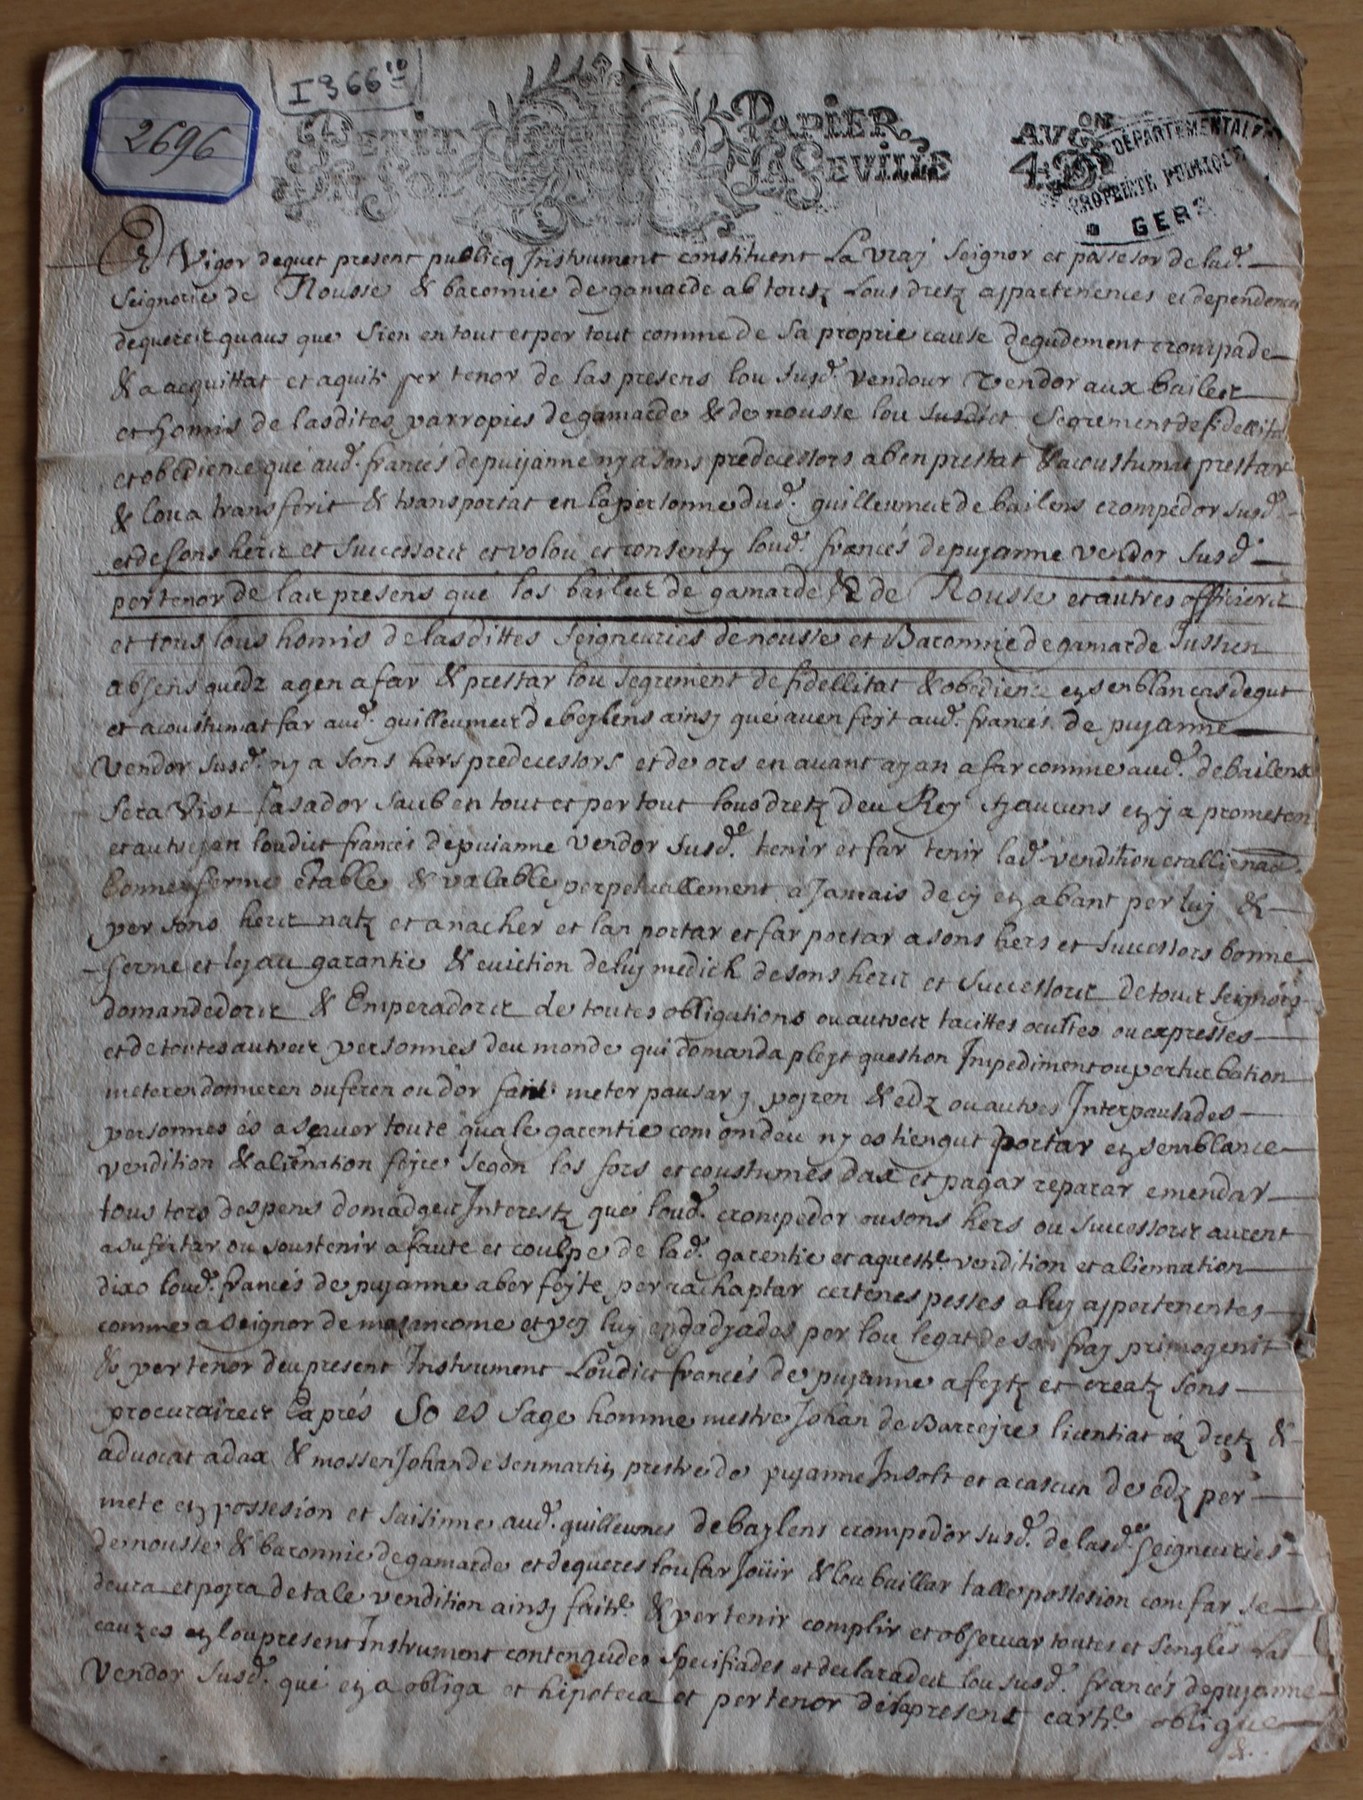 I 366 10
2696
PETIT PAPIER
LA SEVILLE
AVG.ON
48
DÉPARTEMENTALES
PROPRIÉTÉ PUBLIQUE
GERS
Vigor dequet present publicq Instrument constituent La vraj Seignor et possesor de lad.
Seignorie de Nousse & baronnie de gamarde ab toutz Lous dretz appartenences et dependences
dequereir quaus que sien en tout et per tout comme de sa proprie cause degudement crompade
& a acquittat et aquite per tenor de las presens lou susd. vendour vendor aux baileir
et homis de lasdites parropies de gamarde & de nousse lou susdict Segrement de fidellitat
et obedience que aud. francés depuijanne nj a sons predecessors aben prestat & acoustumat prestar
& lou a transferit & transportat en la personne dud. guilleumeir de bailens crompedor susd.
et de sons herir et successorir et volou et consentj loud. francés depujanne vendor susd.
per tenor de lair presens que los baileir de gamarde & de Nousse et autres officierir
et tous lous homis de lasdittes Seigneuries de nousse et Baronnie de gamarde sussien
absens quedz agen a far & prestar lou segrement de fidellitat & obedience en semblan cas degut
et acoustumat far aud. guilleumeir de beylens ainsj qué auen feyt aud. francés de pujanne
vendor susd. nj a sons hers predecessors et de ors en auant ajan a far comme aud. de bailens
sera vist fasador saub en tout et per tout lous dretz deu Rey et jaucens
et autrejan loudict francés depuianne vendor susd. tenir et far tenir lad. vendition et allienaon
bonne ferme etable & valable perpetuallement a jamais de cij en abant per luj &
per sons herir natz et anacher et lan portar et far portar a sons hers et successors bonne
ferme et lejau garantie & euiction de luj medich de sons herir et successorir de touir seignors
domandedorir & Emperadorir de toutes obligations ou autreir tacittes ocultes ou expresses
et de toutes autreir personnes deu monde qui domanda pleyt question Impediment ou perturbation
meteren donneren ou feren ou d'or faite meter pausar j pojren & edz ou autres Interpausades
personnes és a scauer toute quale garentie com om deu nj es tiengut portar en semblance
vendition & alienation feyre segon los fors et coustumes dax et pagar reparar emendar
tous tors despens domadgeir Interestz qué loud. crompedor ou sons hers ou successorir aurent
a sufertar ou soustenir a faute et coulpe de lad. garentie et aqueste vendition et aliennation
dixo loud. francés de pujanne aber feyte per rachaptar certenes pesses a luj appertenentes
comme a Seignor de et per luj engadjades per lou legat de son fraj primogenit
& per tenor deu present Instrument Loudict francés de pujanne a feytz et creatz sons
procuraireir Caprés So es Sage homme mestre Johan de Barrejre licentiat en dretz &
aduocat adax & mossen Johan de senmartin prestre de pujanne Insolt et a cascun de edz per
mete en possesion et saisinne aud. guilleumes de baylens crompedor susd. de lasd. Seigneuries
de nousse & baronnie de gamarde et dequeres lou far Joüir & lou baillar talle possesion com far se
deura et pojra de tale vendition ainsj faite & per tenir complir et obseruar toutes et sengles las
cauzes en lou present Instrument contengudes Specifiades et declaradeir lou susd. francés depujanne
Vendor susd. qué en a obliga et hipoteca et per tenor de la present carte oblique
&